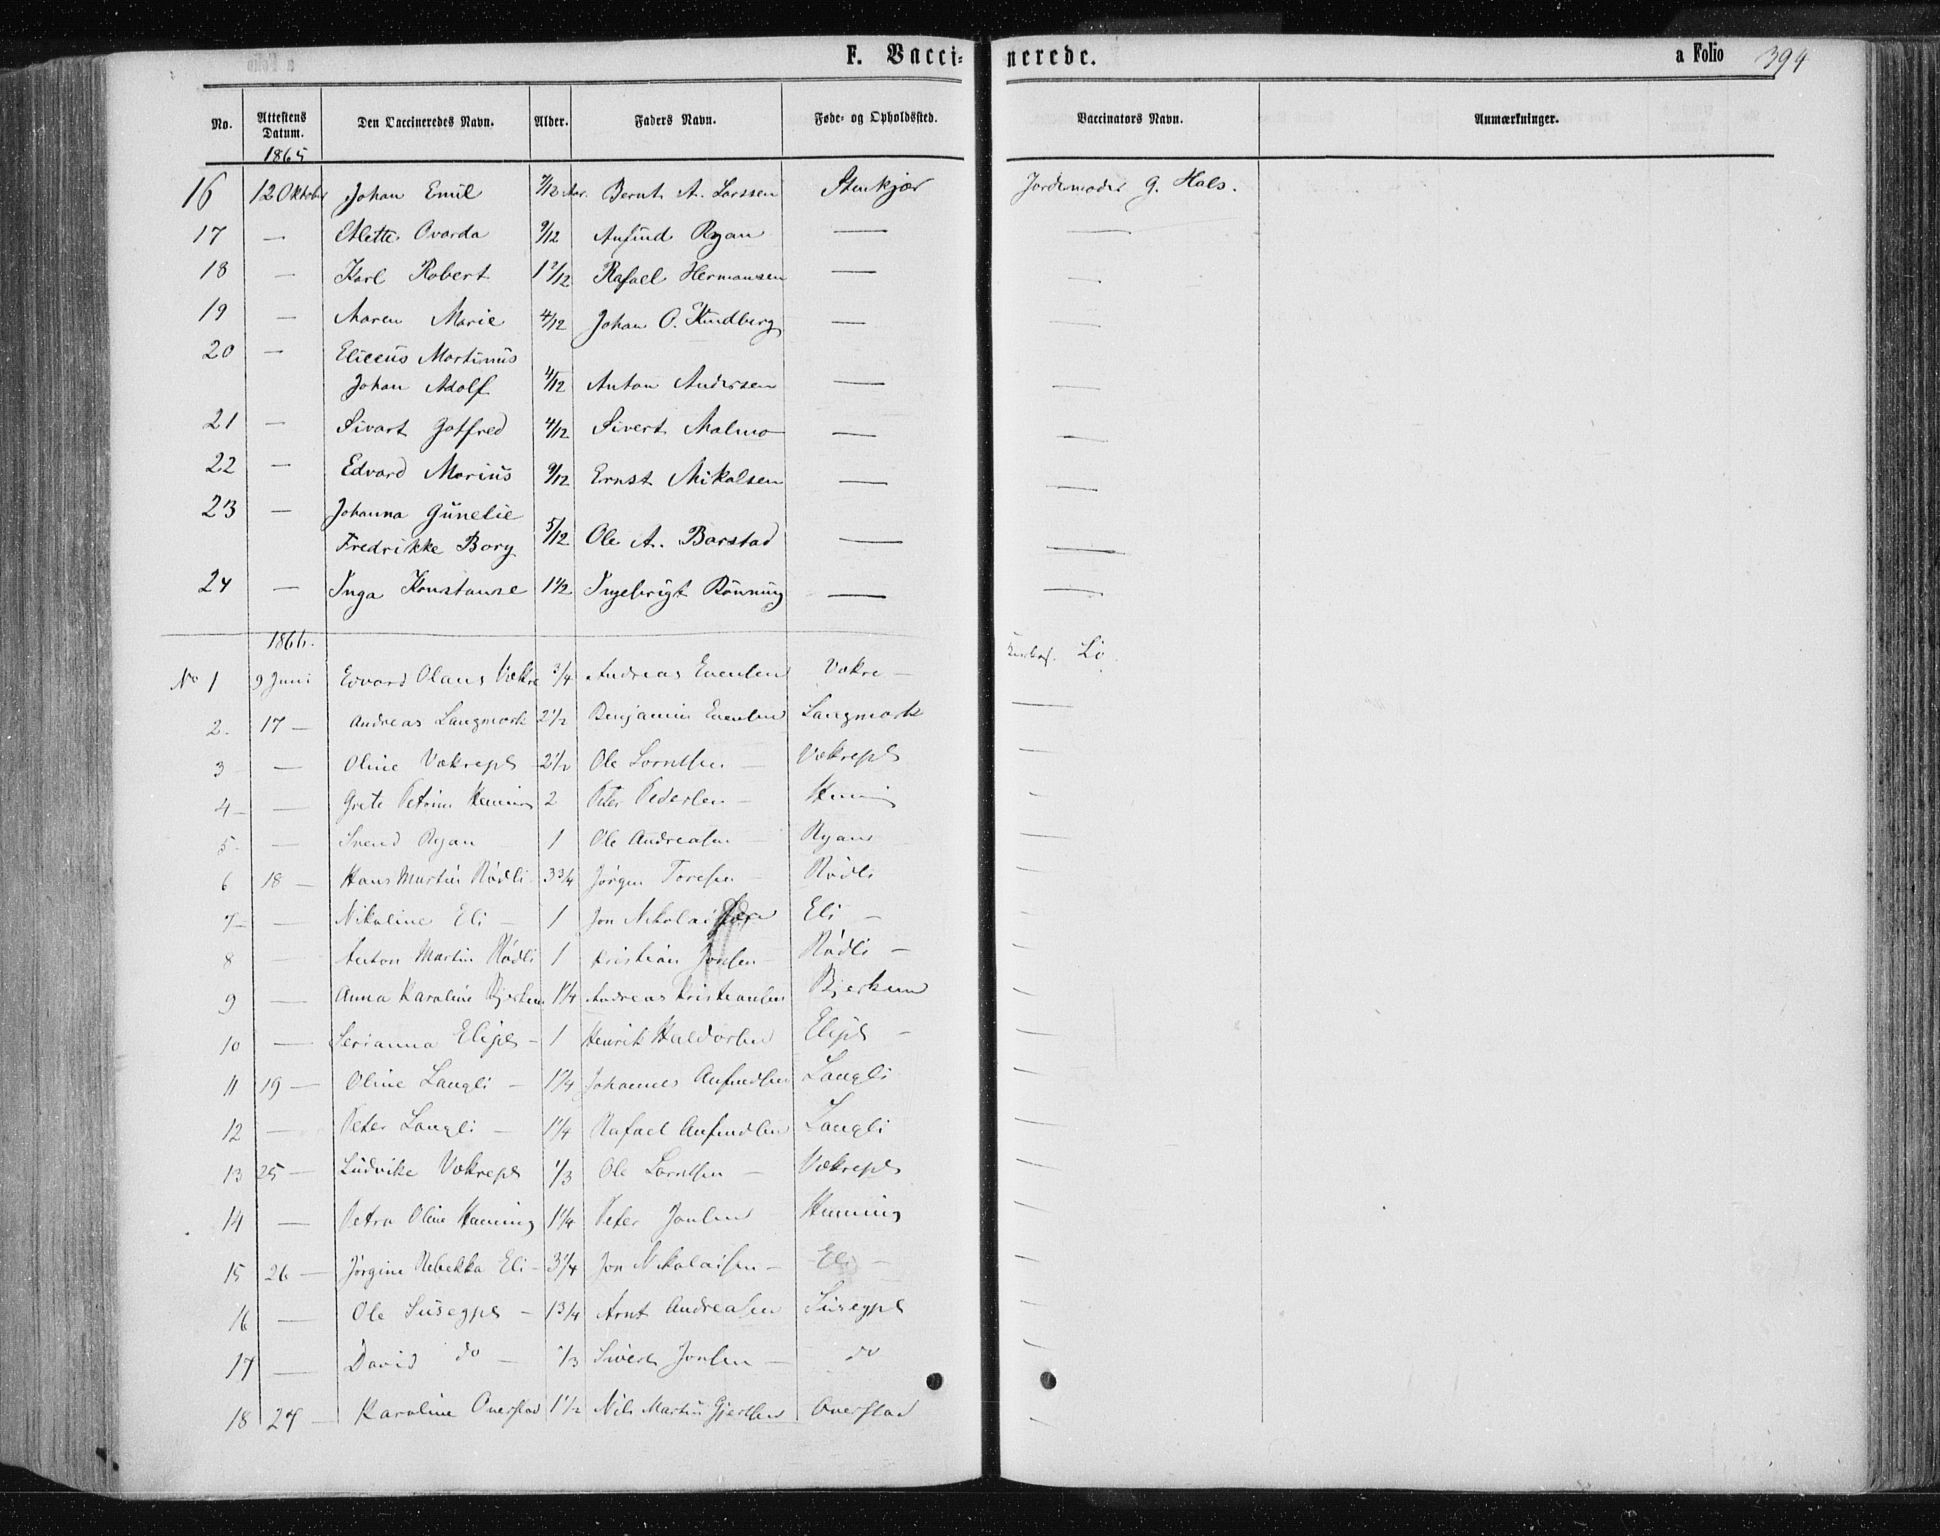 F. Vacci-
nerede.
a Folio 394
No. Attestens Datum. Den Vaccineredes Navn. Alder. Faders Navn. Føde- og Opholdssted. Vaccinators Navn. Anmærkninger.
1865
16 12 Oktober Johan Emil 7/12 Aar. Bernt A. Larssen Stenkjær Jordemoder G. Hals.
17 — Alette Ovarda 9/12 Anfind Ryan — —
18 — Karl Robert 1 2/12 Rafael Hermansen — —
19 — Maren Marie 4/12 Johan O. Kindberg — —
20 — Eliceus Martinus
Johan Adolf 4/12 Anton Andersen — —
21 — Sivart Gotfred 4/12 Sivert Malmo — —
22 — Edvard Marius 9/12 Ernst Mikalsen — —
23 — Johanna Gunelie
Fredrikke Borg 5/12 Ole A. Barstad — —
24 — Inga Konstanse 1 1/2 Ingebrigt Rönning — —
1866.
No 1 9 Juni Edvard Olaus Vakre 3/4 Andreas Evensen Vakre — Lö
2. 17 — Andreas Langmark 2 1/2 Benjamin Evensen Langmark —
3 — Oline Vakrepl 2 1/2 Ole Lorntsen — Vakrepl —
4 — Grete Petrine Heming 2 Peter Pedersen — Heming —
5 — Svend Ryan 1 Ole Andreasen — Ryan —
6 18 — Hans Martin Rödli 3 3/4 Jörgen Toresen — Rödli —
7 — Nikoline Eli — 1 Jon Nikolaisen Eli — —
8 — Anton Martin Rödli 1 Kristian Jonsen — Rödli — —
9 — Anna Karoline Bjerkem 1 1/4 Andreas Kristiansen Bjerkem —
10 — Serianna Elipl — 1 Henrik Haldorsen Elipl — —
11 19 — Oline Langli — 1 1/4 Johannes Anfindsen Langli —
12 — Peter Langli — 1 1/4 Rafael Anfindsen Langli —
13 25 — Ludvike Vakrepl 1/3 Ole Lorntsen — Vakrepl —
14 — Petra Oline Heming 1 1/4 Peter Jonsen Heming —
15 26 — Jörgine Rebekka Eli — 3 1/4 Jon Nikolaisen — Eli — —
16 — Ole Susegpl — 1 3/4 Arnt Andreasen Susegpl —
17 — David do — 1/3 Sivert Jonsen — do —
18 27 — Karoline Overstad 1 1/2 Nils Martin Gjertsen Overstad —